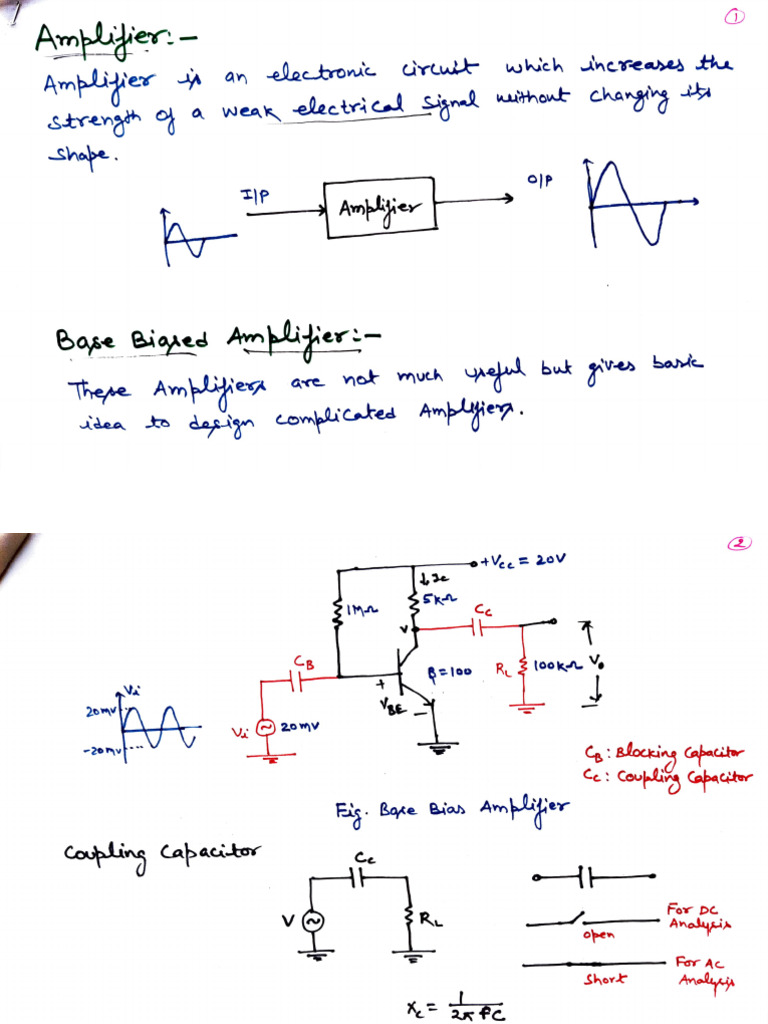 1
Amplifier:-
Amplifier is an electronic circuit which increases the
strength of a weak electrical signal without changing its
shape.
I/P
Amplifier
O/P
Base Biased Amplifier:-
These Amplifiers are not much useful but gives basic
idea to design complicated Amplifiers.
2
+Vcc = 20V
↓Ic
1MΩ
5KΩ
Cc
V
CB
β=100
RL
100KΩ
Vo
+
VBE
-
Vi
20mV
-20mV
Vi
20mV
CB: Blocking Capacitor
Cc: Coupling Capacitor
Fig. Base Bias Amplifier
Coupling Capacitor
Cc
V
RL
open
For DC
Analysis
Short
For AC
Analysis
Xc = 1/2π fC